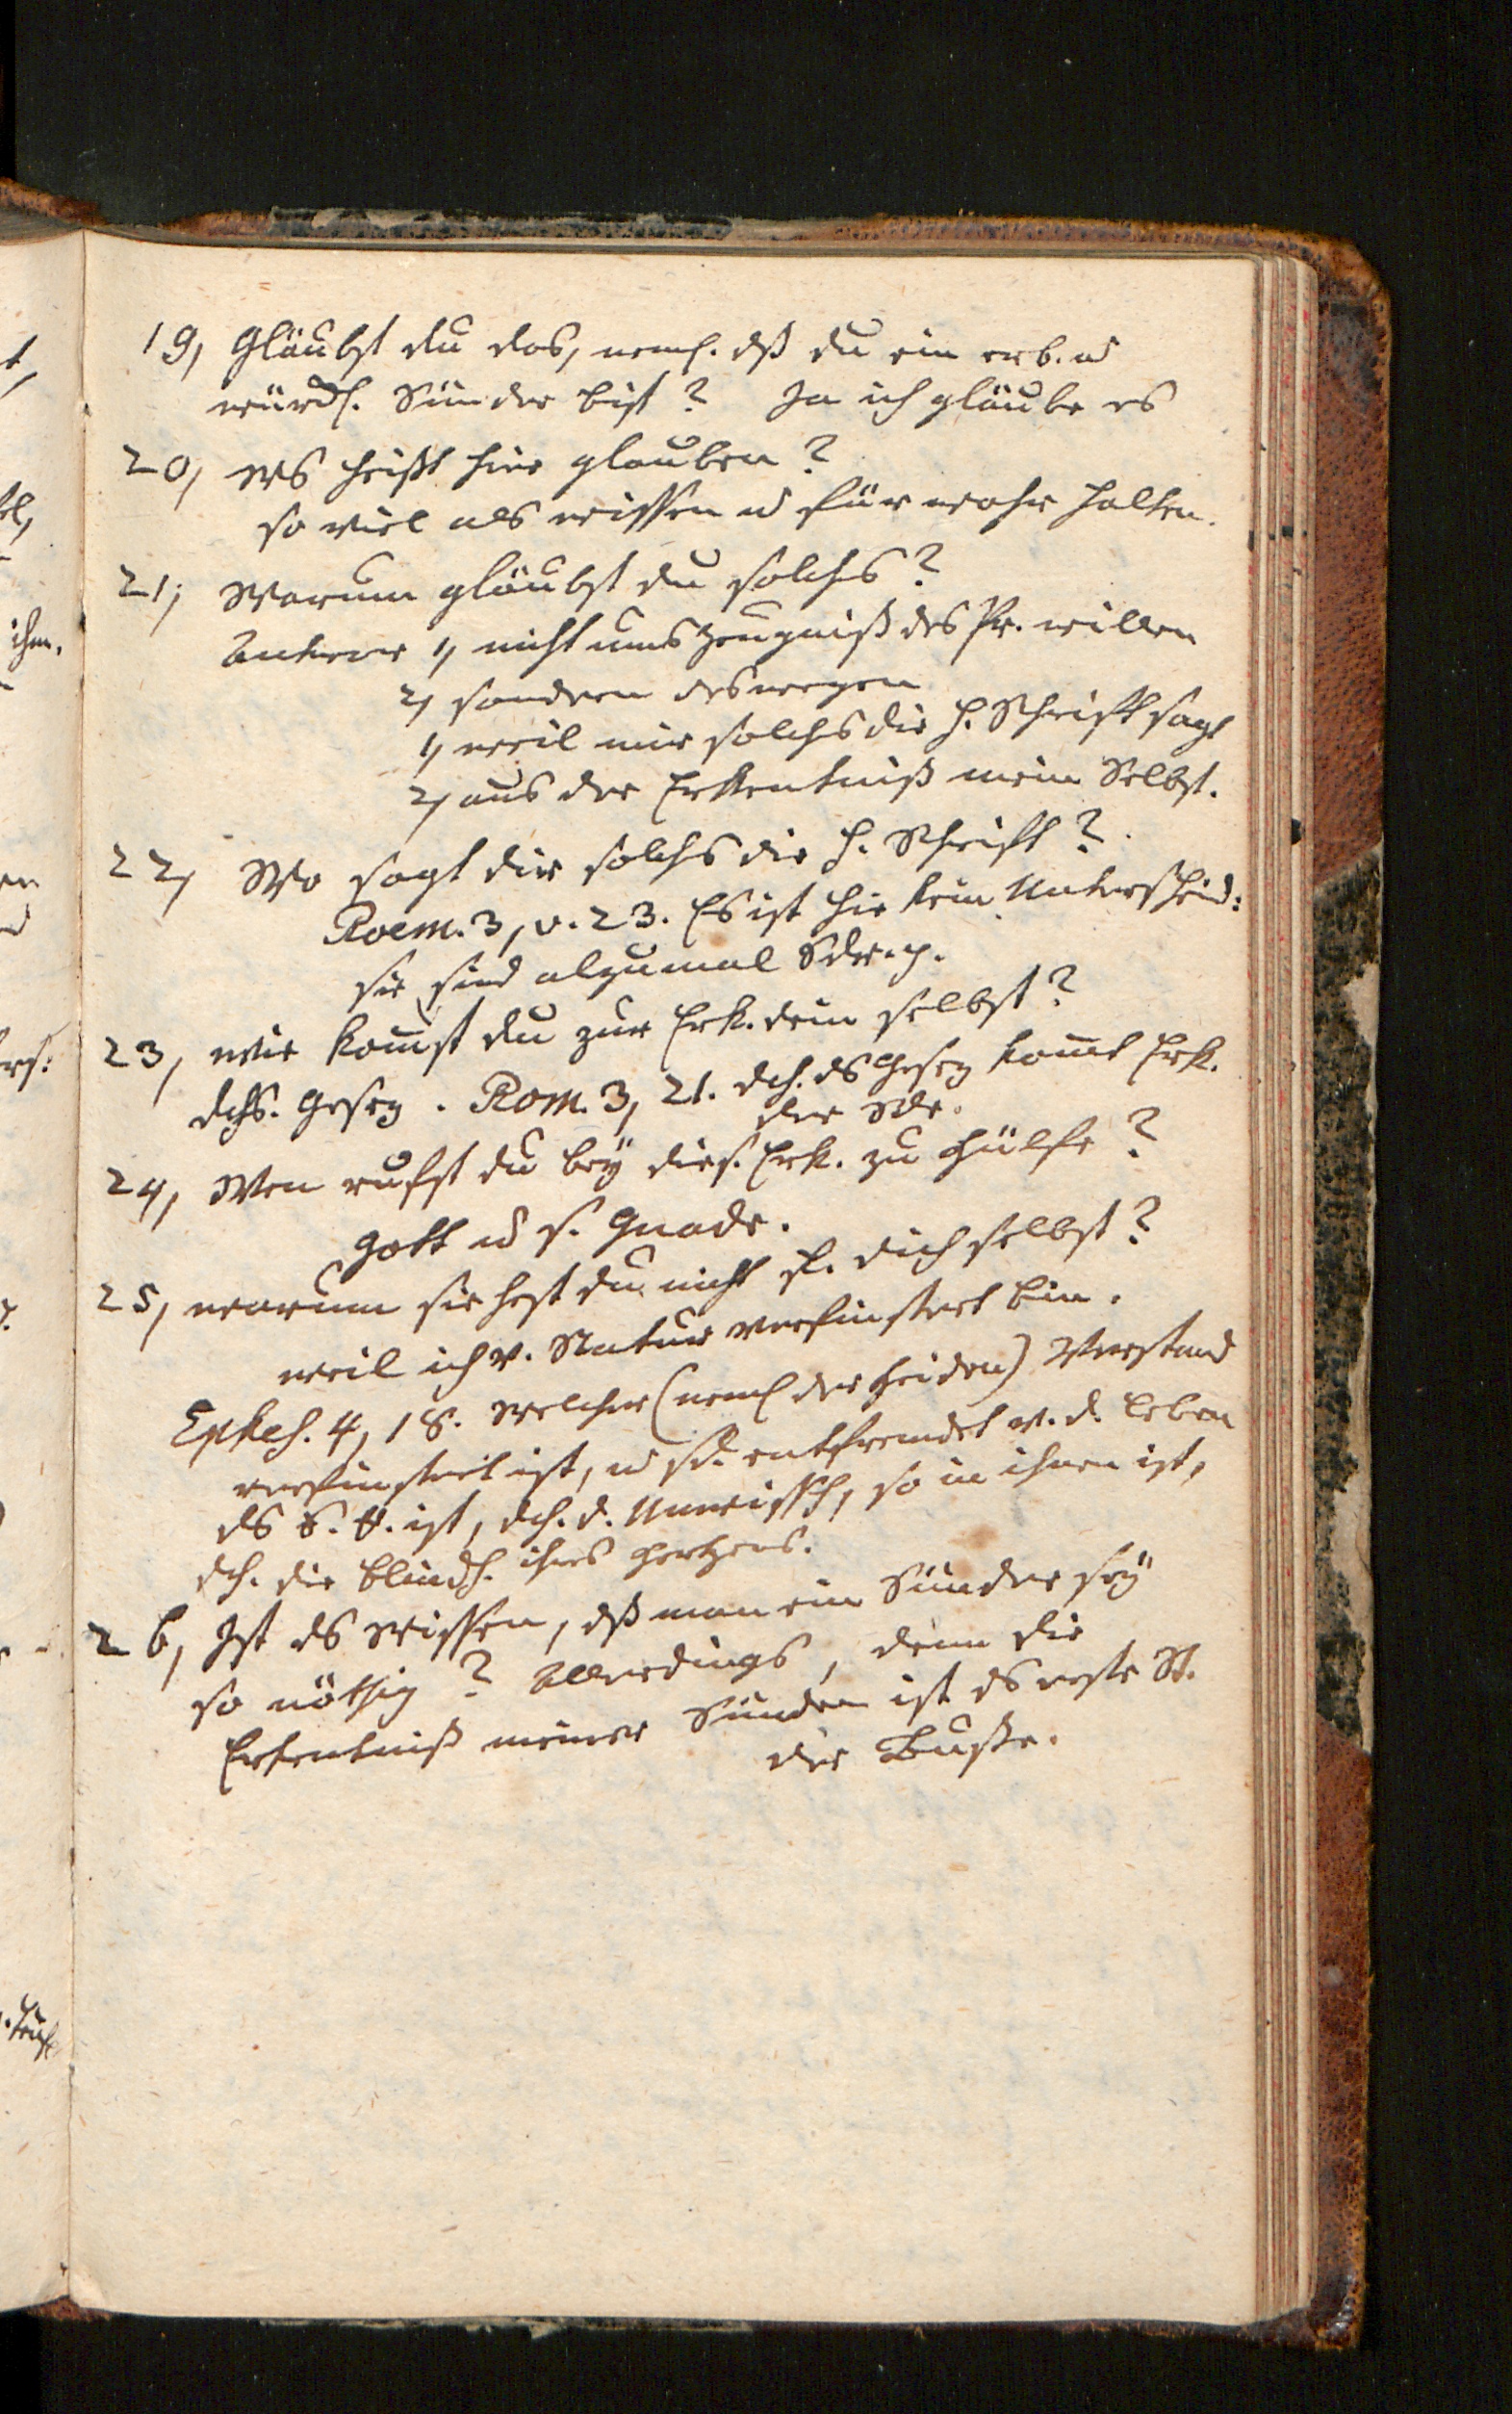 19, Gläubst du das, neml. dß du ein erb. u
würckl. Sünder bist? Ja ich gläube es
20, Ws heißt hier glauben?
so viel als wissen u für wahr halten.
21, Warum gläubst du solchs?
Antwor 1, nicht ums Zeugniß des Pr. willen
2, sondern deswegen
1, weil mir solchs die H. Schrifft sagt
2, aus der Erkentniß mein Selbst.
22, Wo sagt dir solchs die H. Schrifft?
Roem. 3, v. 23. Es ist hie kein Unterscheid:
sie sind alzumal Sdr.
23, wie komst du zur Erk. dein selbst?
dchs. Gesez. Rom. 3, 21. dch. ds Gesez komt Erk.
der Sde.
24, Wen rufst du bey dies. Erk. zu Hülfe?
Gott u s. Gnade.
25, warum siehest du nicht f. dich selbst?
weil ich v. Natur verfinstert bin.
Ephes. 4, 18. Welcher (neml der Heiden) Verstand
verfinstert ist, u sd. entfremdet v. d. Leben
ds ist, dch. d. Unwissh, so in ihnen ist,
dch. die Blindh. ihres Hertzens.
26, Ist ds Wissen, dß man ein Sünder sey
so nöthig? Allerdings, denn die
Erkentniß meiner Sünden ist ds erste St.
der Busse.
ihm.